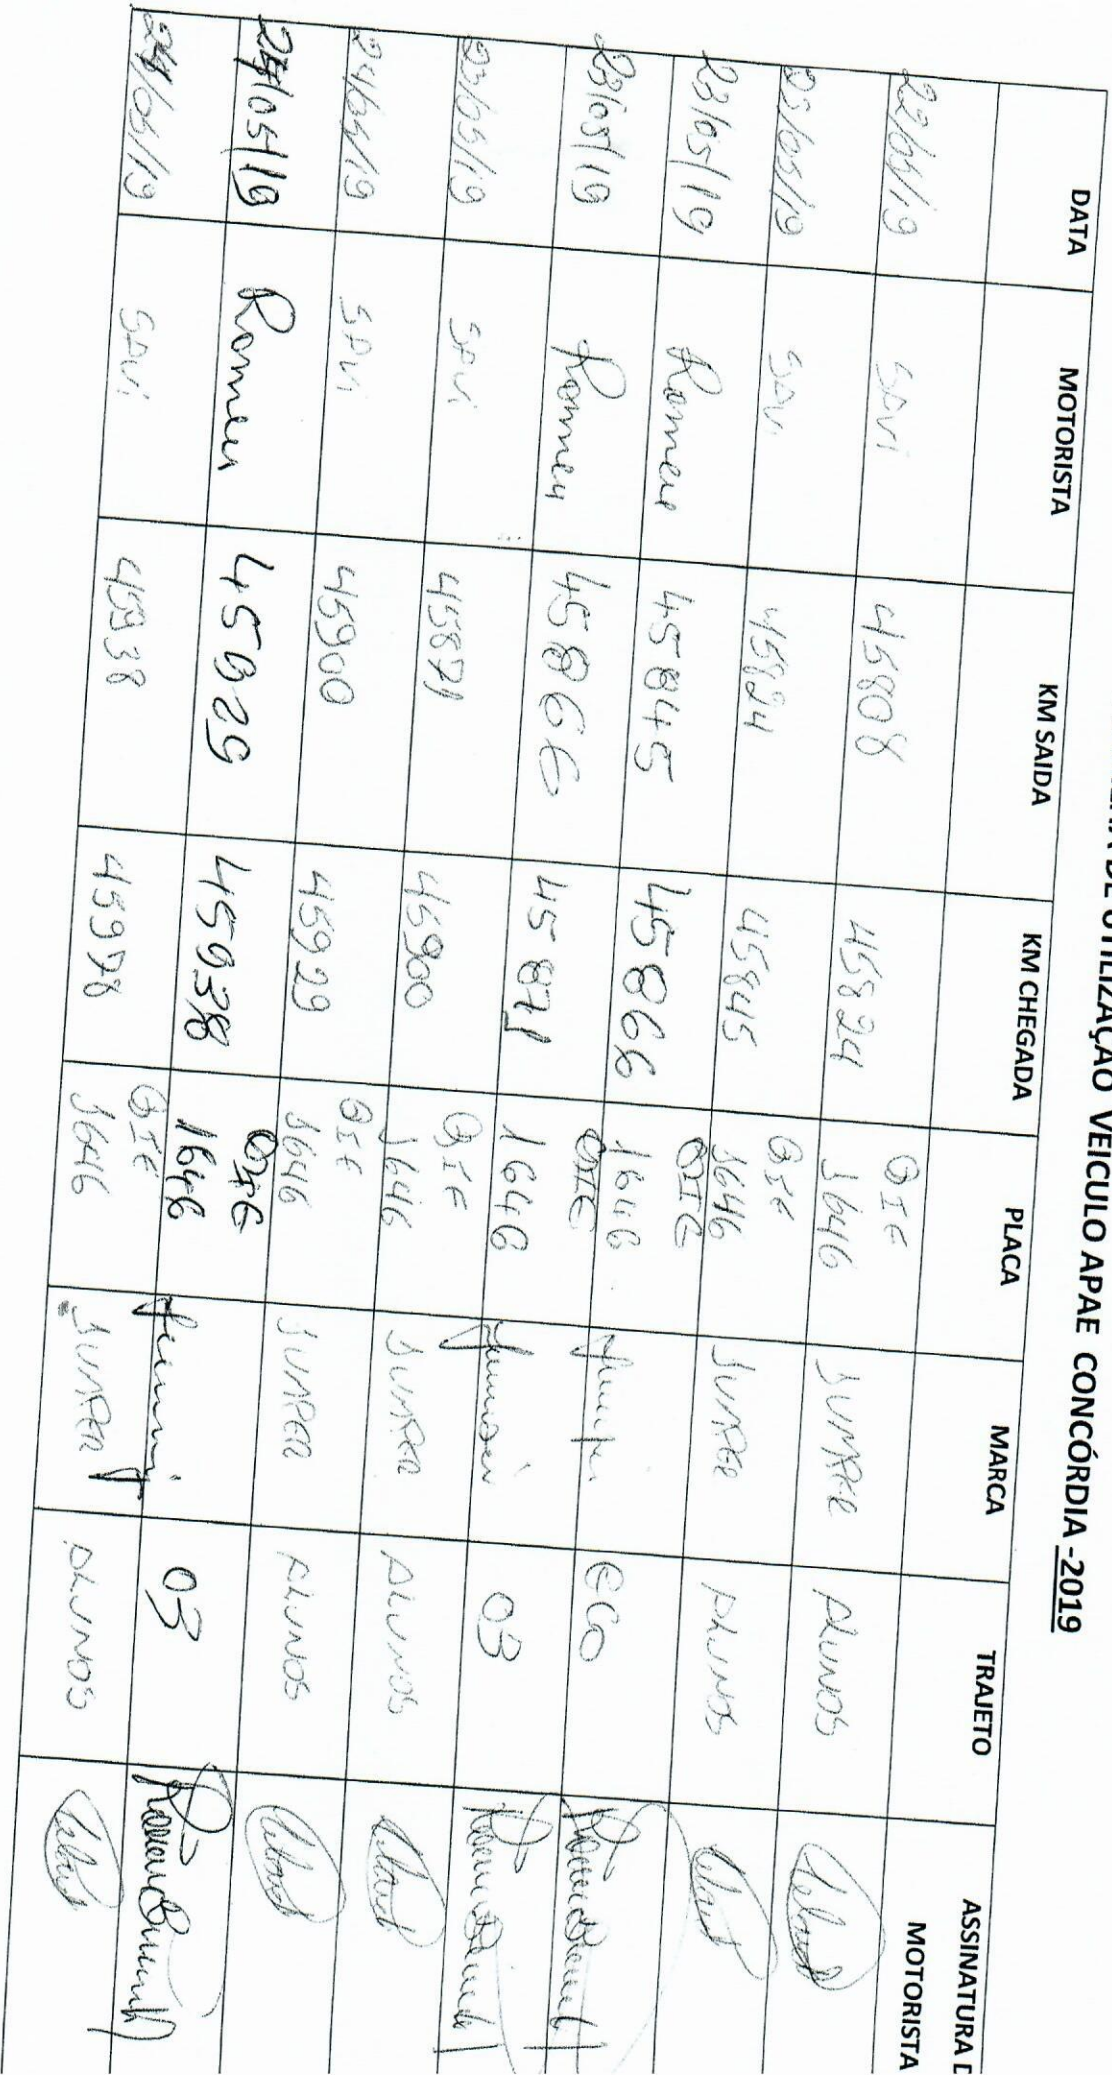 DE UTILIZAÇÃO VEICULO APAE CONCÓRDIA -2019
DATA MOTORISTA KM SAIDA KM CHEGADA PLACA MARCA TRAJETO ASSINATURA D
MOTORISTA
22/05/19 SAVI 45808 45824 QIE 1646 JUMPER ALUNOS
23/05/19 SAVI 45824 45845 QIE 1646 JUMPER ALUNOS
23/05/19 Romeu 45845 45866 QIE 1646 ECO
23/05/19 Romeu 45866 45871 QIE 1646 03
23/05/19 SAVI 45871 45900 QIE 1646 JUMPER ALUNOS
24/05/19 SAVI 45900 45929 QIE 1646 JUMPER ALUNOS
24/05/19 Romeu 45929 45938 QIE 1646 03
24/05/19 SAVI 45938 45978 QIE 1646 JUMPER ALUNOS